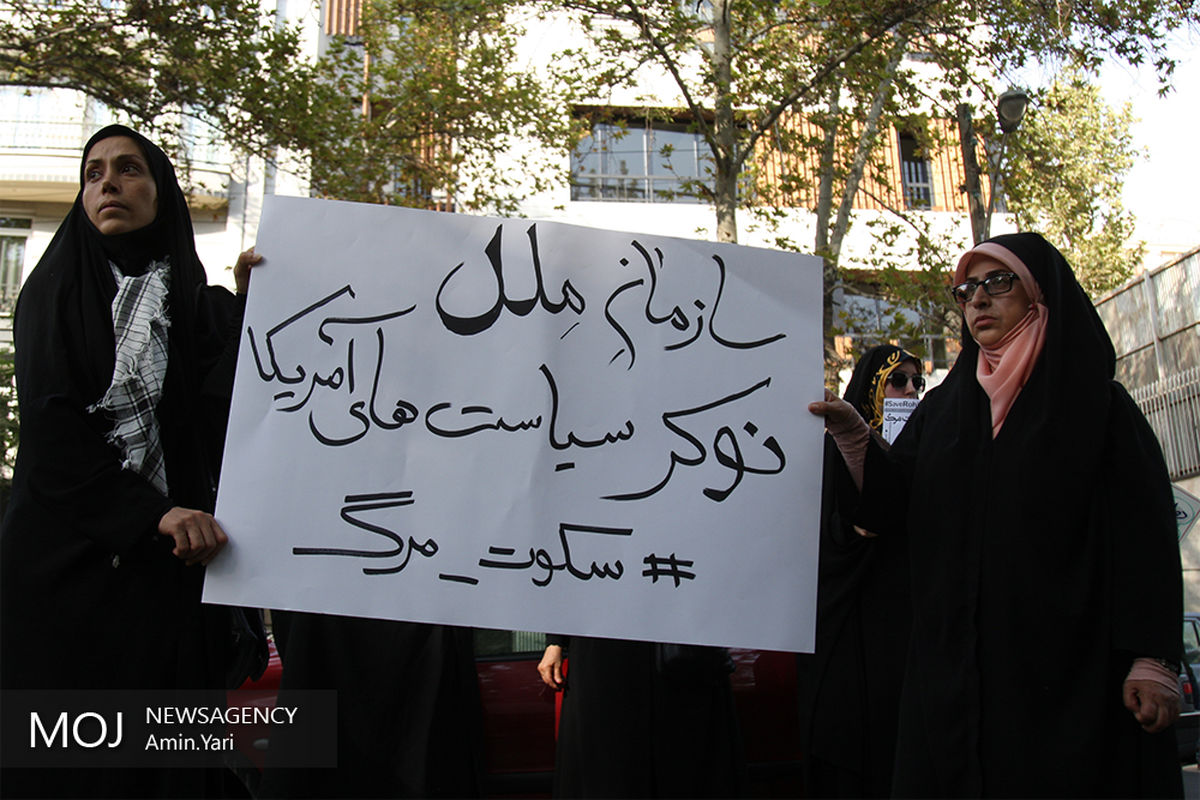 سازمان مِلل
نوکر سیاست های آمریکا
# سکوت_مرگ
#SaveRoh
MOJ
NEWSAGENCY
Amin.Yari